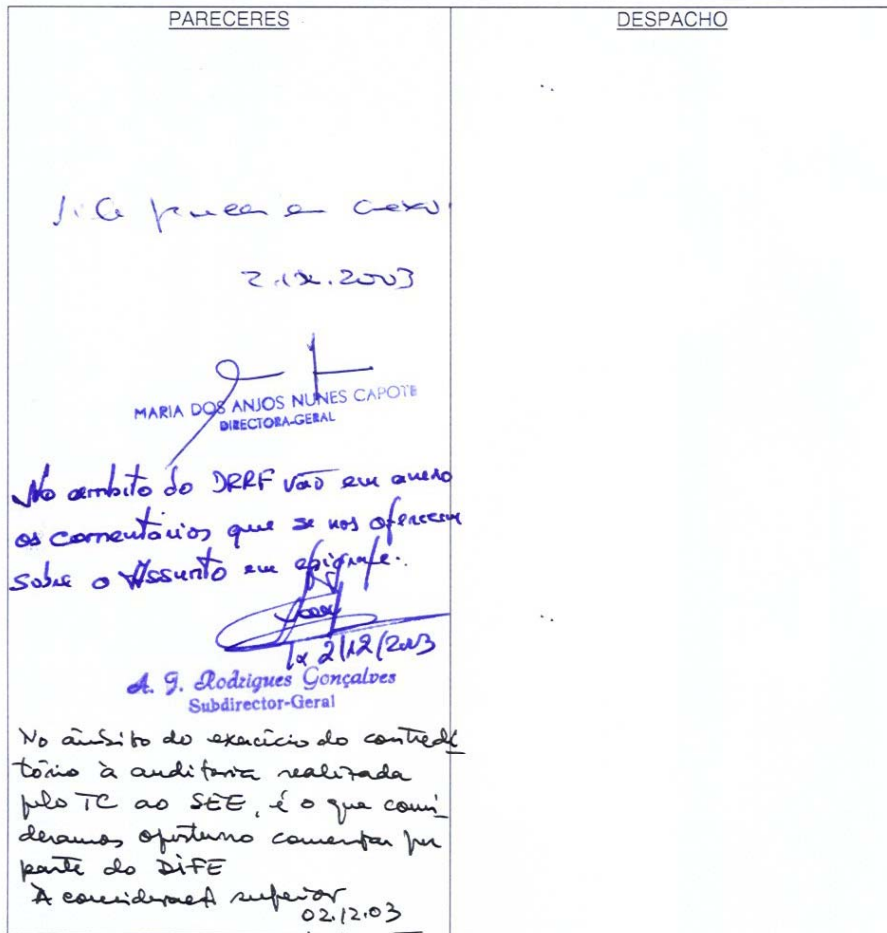 PARECERES
DESPACHO
em
2.12.2003
MARIA DOS ANJOS NUNES CAPOTE
DIRECTORA-GERAL
No ambito do DRRF vão em anexo
os comentários que se nos oferecem
sobre o Assunto em epígrafe.
Lx 2/12/2003
A. G. Rodrigues Gonçalves
Subdirector-Geral
No âmbito do exercício do contradi
tório à auditoria realizada
pelo TC ao SEE, é o que consi_
deramos oportuno comentar por
parte do DIFE
À consideração superior
02.12.03